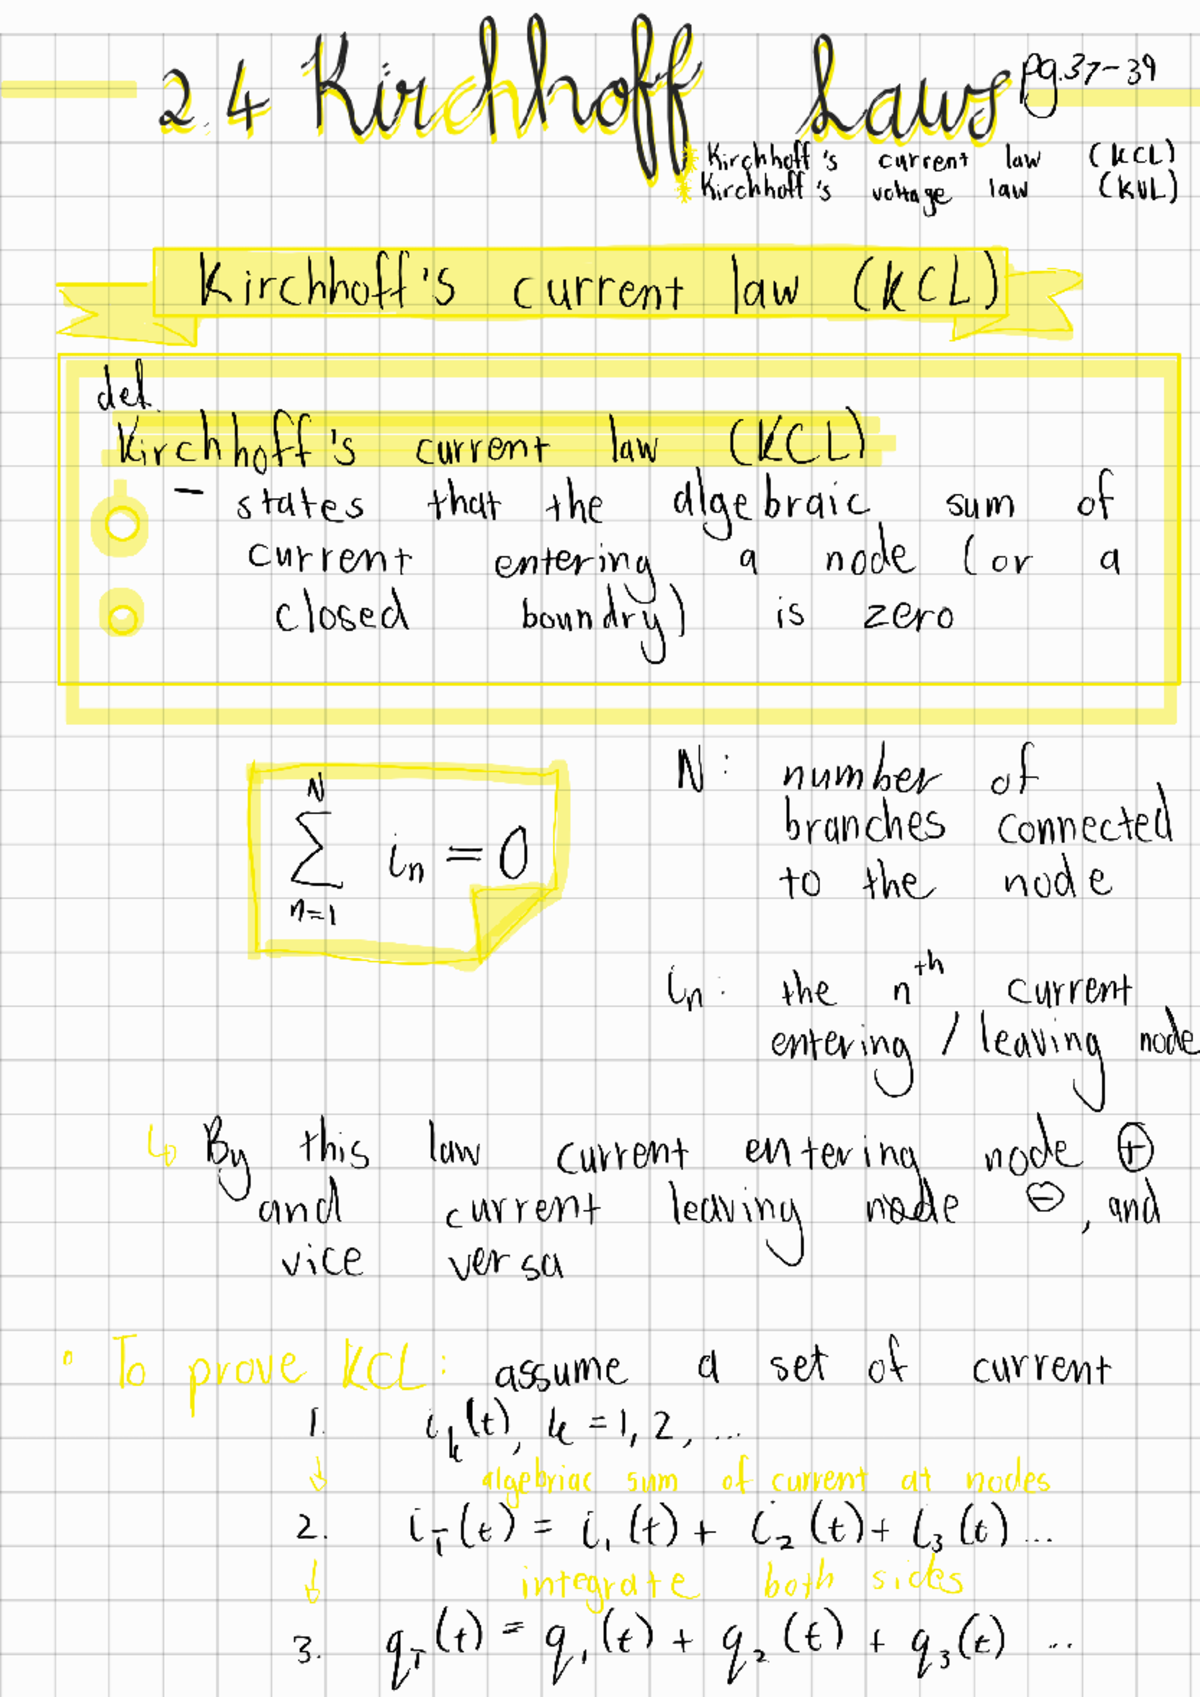 2.4 Kirchhoff Laws pg.37-39
* Kirchhoff's current law (KCL)
* Kirchhoff's voltage law (KVL)
Kirchhoff's current law (KCL)
def.
Kirchhoff's current law (KCL)
- states that the algebraic sum of
current entering a node (or a
closed boundry) is zero
N
∑ iₙ = 0
n=1
N: number of
branches connected
to the node
iₙ: the nᵗʰ current
entering / leaving node
↳ By this law current entering node ⊕
and current leaving node ⊖, and
vice versa
• To prove KCL: assume a set of current
1. iₖ(t), k = 1, 2, ...
↓ algebriac sum of current at nodes
2. i_T(t) = i₁(t) + i₂(t) + i₃(t) ...
↓ integrate both sides
3. q_T(t) = q₁(t) + q₂(t) + q₃(t) ...